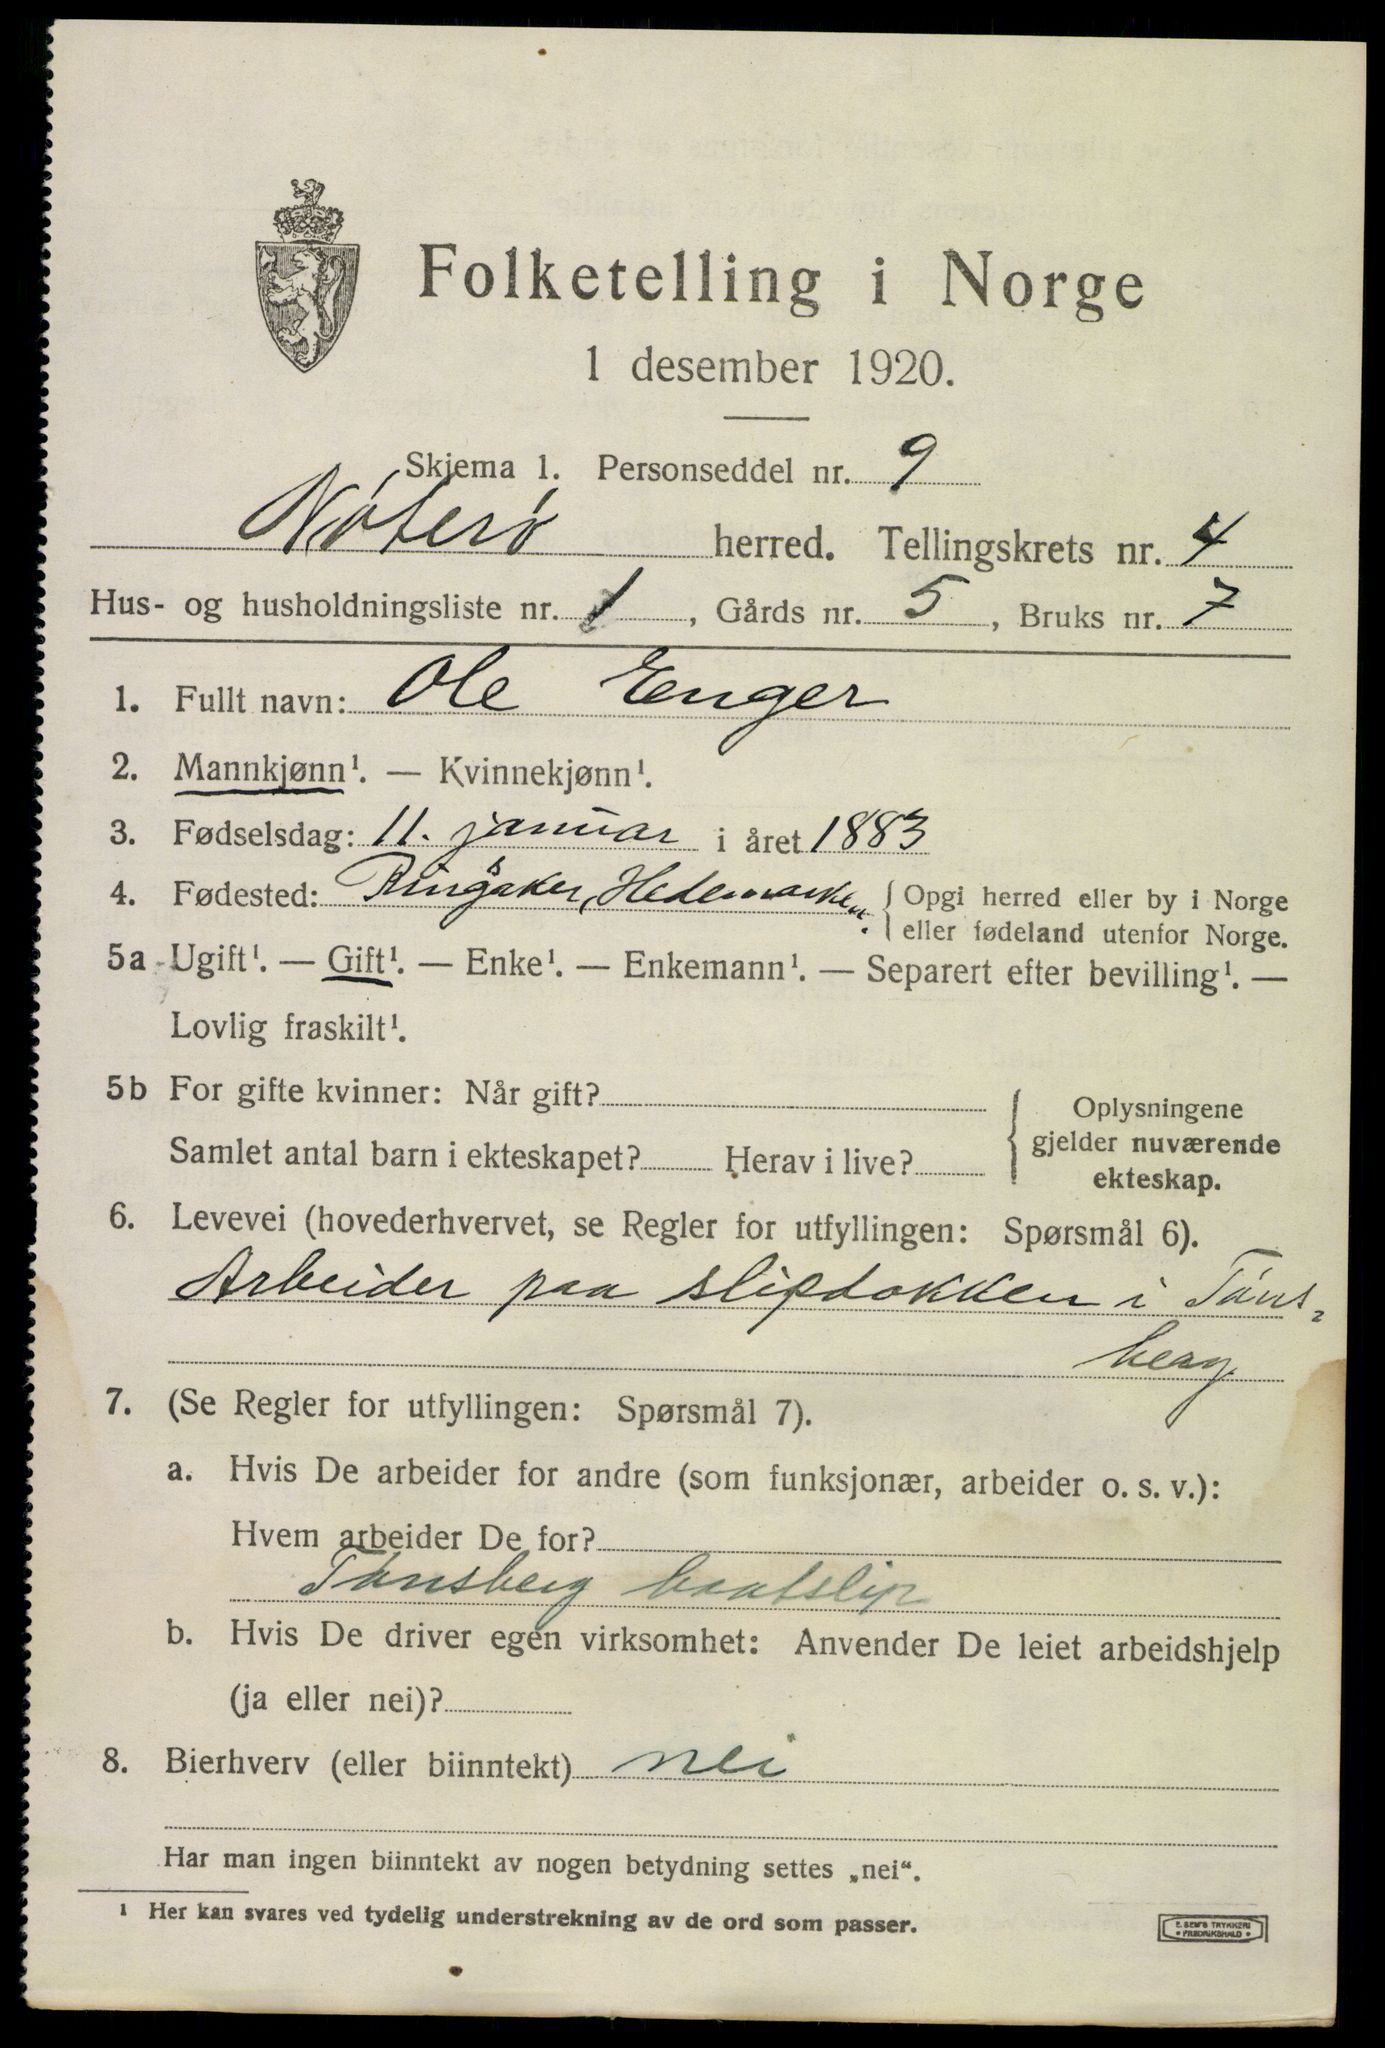 Folketelling i Norge
1 desember 1920.
Skjema 1. Personseddel nr. 9
Nøterø herred. Tellingskrets nr. 4
Hus- og husholdningsliste nr. 1, Gårds nr. 5, Bruks nr. 7
1. Fullt navn: Ole Enger
2. Mannkjønn¹. — Kvinnekjønn¹.
3. Fødselsdag: 11. januar i året 1883
4. Fødested: Ringsaker, Hedemarken. { Opgi herred eller by i Norge
eller fødeland utenfor Norge.
5a Ugift¹. — Gift¹. — Enke¹. — Enkemann¹. — Separert efter bevilling¹. —
Lovlig fraskilt¹.
5b For gifte kvinner: Når gift?
Samlet antal barn i ekteskapet? Herav i live?
{ Oplysningene
gjelder nuværende
ekteskap.
6. Levevei (hovederhvervet, se Regler for utfyllingen: Spørsmål 6).
Arbeider paa slipdokken i Tøns-
berg
7. (Se Regler for utfyllingen: Spørsmål 7).
a. Hvis De arbeider for andre (som funksjonær, arbeider o. s. v.):
Hvem arbeider De for?
Tønsberg baatslip
b. Hvis De driver egen virksomhet: Anvender De leiet arbeidshjelp
(ja eller nei)?
8. Bierhverv (eller biinntekt) nei
Har man ingen biinntekt av nogen betydning settes „nei“.
¹ Her kan svares ved tydelig understrekning av de ord som passer.
E. SEM'S TRYKKERI
• FREDRIKSHALD •